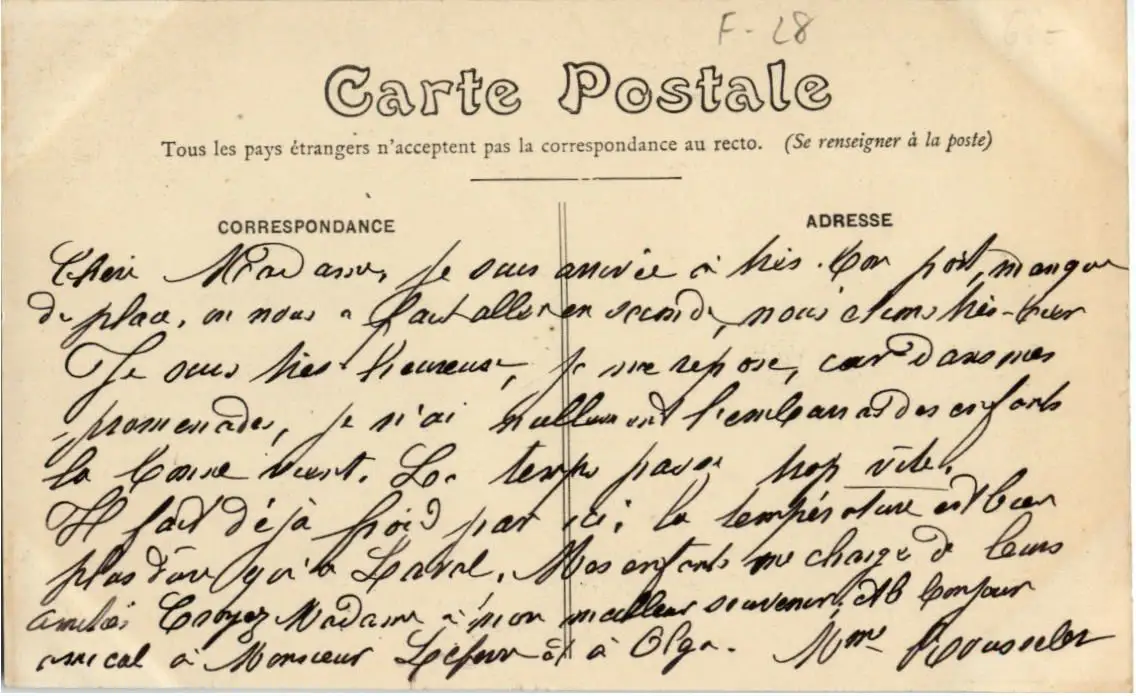 F - 28
Carte Postale
Tous les pays étrangers n'acceptent pas la correspondance au recto. (Se renseigner à la poste)
CORRESPONDANCE
ADRESSE
Chère Madame, je suis arrivée à très bon port, manque
de place, on nous a fait aller en seconde, nous étions très-bien
Je suis très-heureuse, je me repose, car dans mes
promenades, je n'ai nullement l'embarras des enfants
la bonne vient. Le temps passe trop vite.
Il fait déjà froid par ici, la température est bien
plus dure qu'à Laval. Mes enfants me charge de leurs
amitiés Croyez Madame à mon meilleur souvenir. bonjour
amical à Monsieur et à Olga. Mme Rousselet